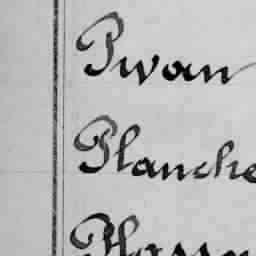 Pwan
Planche